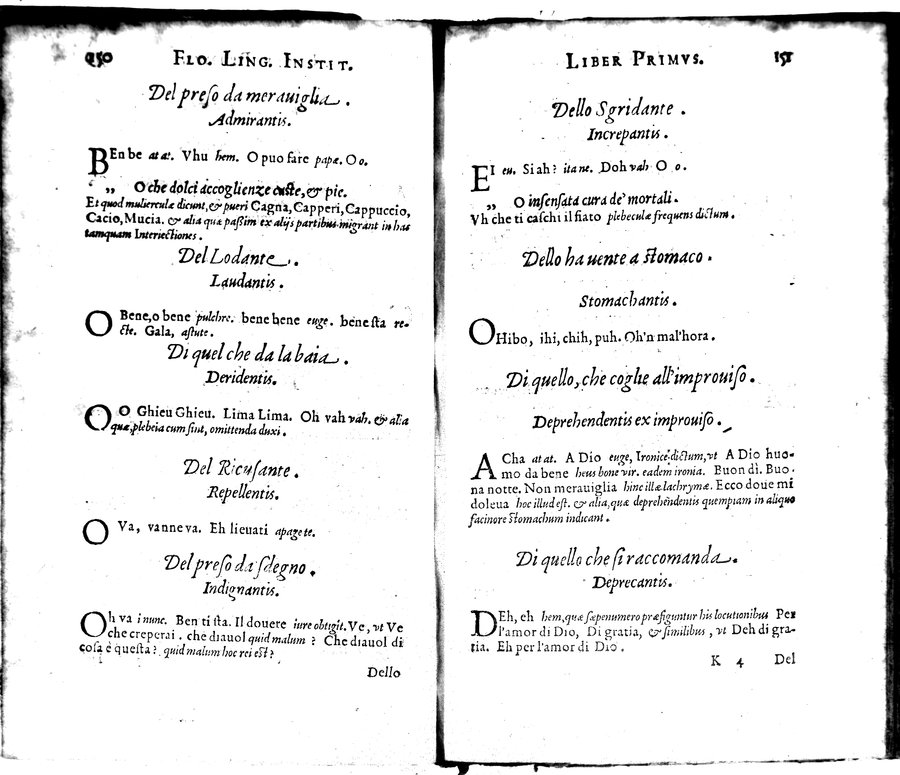 150 FLO. LING. INSTIT.
Del preso da merauiglia.
Admirantis.
BEn be at at. Vhu hem. O puo fare papæ. O o.
„ O che dolci accoglienze caste, & pie.
Et quod mulierculæ dicunt, & pueri Cagna, Capperi, Cappuccio,
Cacio, Mucia. & alia quæ passim ex alijs partibus migrant in has
tamquam Interiectiones.
Del Lodante.
Laudantis.
O Bene, o bene pulchre. bene bene euge. bene sta re-
cte. Gala, astute.
Di quel che da la baia.
Deridentis.
O O Ghieu Ghieu. Lima Lima. Oh vah vah. & alia
quæ, plebeia cum sint, omittenda duxi.
Del Ricusante.
Repellentis.
O Va, vanneva. Eh lieuati apagete.
Del preso da sdegno.
Indignantis.
Oh va i nunc. Ben ti sta. Il douere iure obtigit. Ve, vt Ve
che creperai. che diauol quid malum? Che diauol di
cosa è questa? quid malum hoc rei est?
Dello
LIBER PRIMVS. 151
Dello Sgridante.
Increpantis.
EI eu. Si ah? itane. Doh vah O o.
„ O insensata cura de' mortali.
Vh che ti caschi il fiato plebeculæ frequens dictum.
Dello ha uente a stomaco.
Stomachantis.
OHibo, ihi, chih, puh. Oh'n mal'hora.
Di quello, che coglie all'improuiso.
Deprehendentis ex improuiso.
ACha at at. A Dio euge, Ironice dictum, vt A Dio huo-
mo da bene heus bone vir. eadem ironia. Buon dì. Buo-
na notte. Non merauiglia hinc illæ lachrymæ. Ecco doue mi
doleua hoc illud est. & alia, quæ deprehendentis quempiam in aliquo
facinore stomachum indicant.
Di quello che si raccomanda.
Deprecantis.
DEh, eh hem, quæ sæpenumero præfiguntur his locutionibus Per
l'amor di Dio, Di gratia, & similibus, vt Deh di gra-
tia. Eh per l'amor di Dio.
K 4 Del